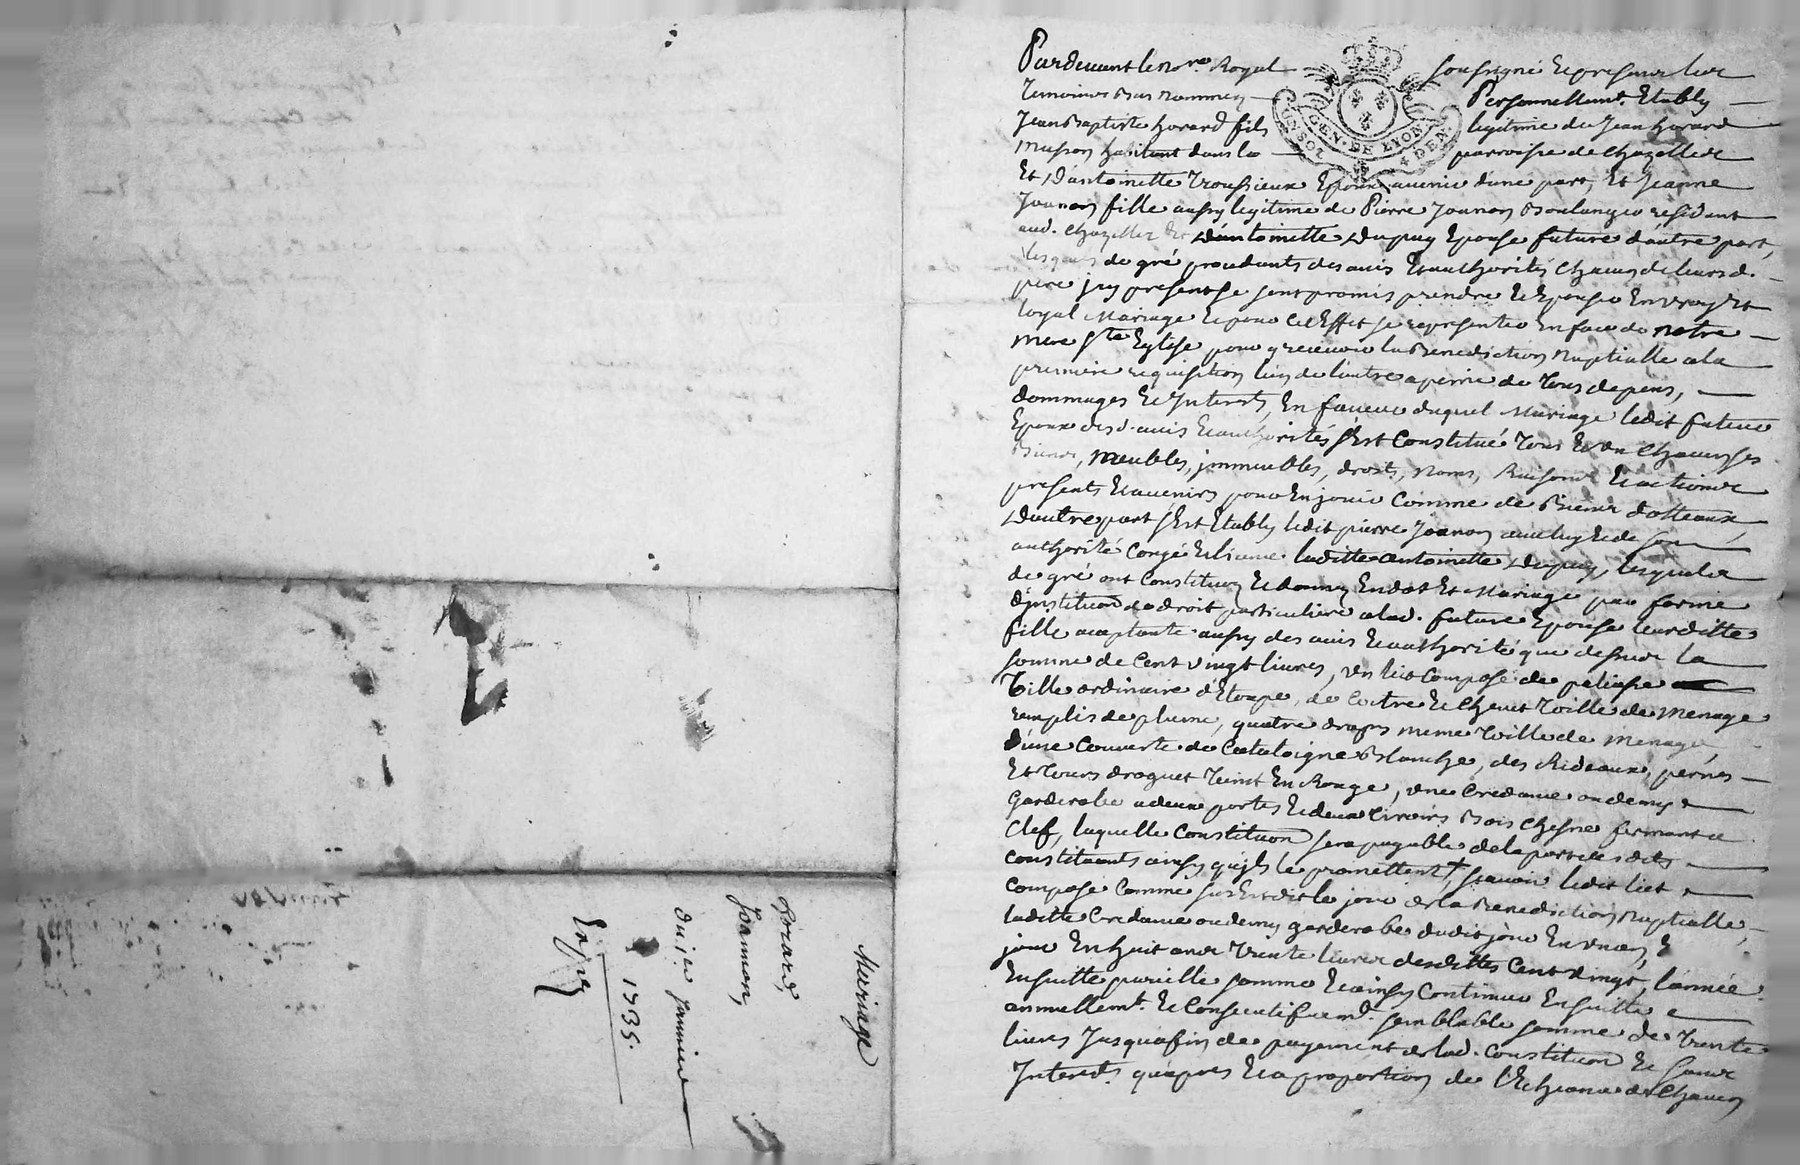 Pardevant le no.re Royal soussigné et presents les
Temoins Bas nommés Personnellem.t Etably
Jean Baptiste horard fils legitime de Jean horard
masson habitant dans la parroisse de chazelles
Et D'antoinette troussieux Epoux avenir d'une part, Et Jeanne
Joanon fille aussy legitime de Pierre Joanon Boulanger residant
aud. chazelles Et D'antoinette Dupuy Epouse future d'autre part,
Lesquels de gré procedants des avis Et authorités chacun de leurs d.
pere jcy present se sont promis prendre Et Epouser En vray Et
loyal Mariage Et pour cet Effet se representer En face de notre
mere S.te Eglise pour y recevoir la Benediction Nuptialle a la
premiere requisition l'un de l'autre a peine de tous depens,
dommages Et Interests, En faveur duquel Mariage ledit futur
Epoux des d. avis Et authorités s'Est Constitué tous Et un chacun ses
Biens, meubles, jmmeubles, droits, Noms, Raisons Et actions
presents Et avenirs pour En jouir Comme de Biens dotteaux,
D'autre part s'Est Etably ledit pierre Joanon avec luy Et de son
authorité Congé Et licence laditte antoinette Dupuy, lesquels
de gré ont Constitué Et donné En dot Et Mariage par forme
d'jnstitution de droit particuliere a lad. future Epouse leurditte
fille acceptante aussy des avis Et authorité que dessus la
somme de Cent vingt livres, un lict composé de paliasse
Toille ordinaire d'Etoupe, de Coitre Et Chevet Toille de Menage
remplis de plume, quatre draps meme Toille de menage,
d'une Couverte de Catalogne Blanche, des Rideaux, pernes
Et Tours droguet teint En Rouge, une Credance ou demy
Garderobe a deux portes Et deux tiroirs Bois chesne fermant a
Clef, laquelle Constitution sera payable de la part des dits
constituants ainsy qu'jls le promettent, sçavoir ledit lict
Composé Comme sus Est dit le jour de la Benediction Nuptialle,
laditte Credance ou demy garderobe dudit jour En un an, E
jour En huit ans trente livres desdittes Cent vingt, l'année
Ensuitte pareille somme Et ainsy Continuer Ensuitte
annuellem.t Et Consecutifvem.t semblable somme de trente
livres Jusqu'a fin de payement de lad. Constitution Et sans
Interests qu'apres Et a proportion de l'Echeance de Chacun
Mariage
horard
Joannon,
du 12 janvier
1735.
Exped